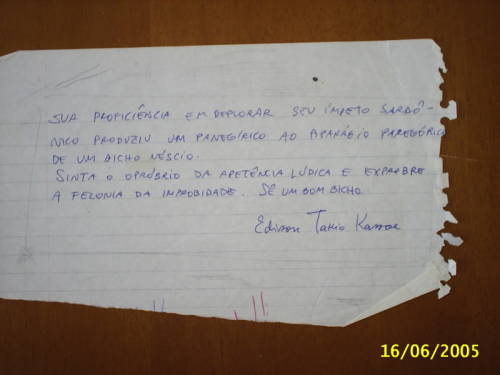 SUA PROFICIÊNCIA EM DEPLORAR SEU ÍMPETO SARDÔ-
NICO PRODUZIU UM PANEGÍRICO AO APANÁGIO PAREGÓRICO
DE UM BICHO NÉSCIO.
SINTA O OPRÓBRIO DA APETÊNCIA LÚDICA E EXPROBRE
A FELONIA DA IMPROBIDADE. SÊ UM BOM BICHO
Edison
16/06/2005